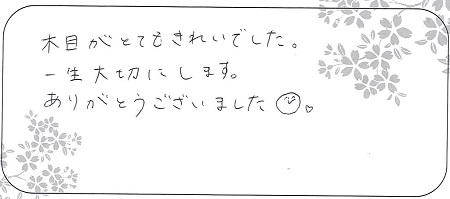 木目がとてもきれいでした。
一生大切にします。
ありがとうございました。